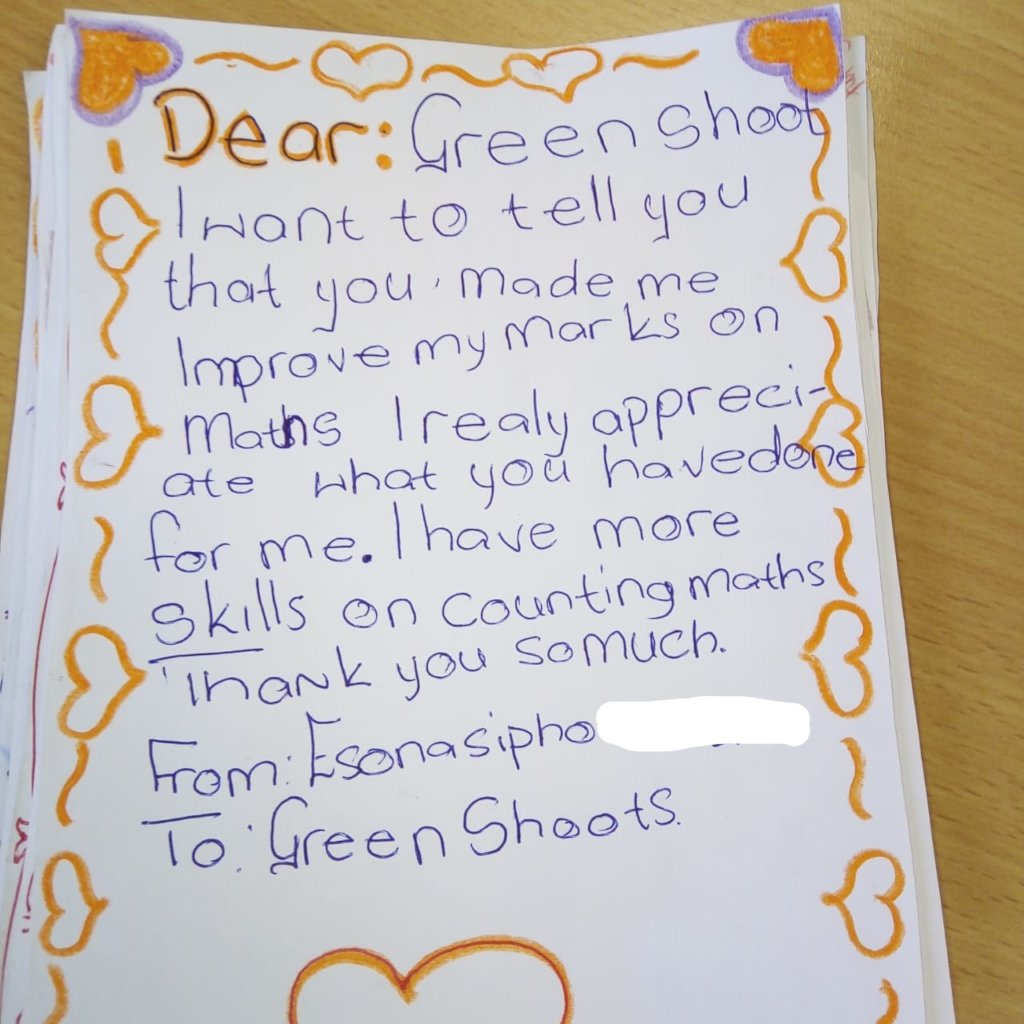 Dear: Green Shoot
I want to tell you
that you. made me
Improve my marks on
maths I realy appreci-
ate what you havedone
for me. I have more
skills on counting maths
Thank you somuch.
From: Esonasipho
To: Green Shoots.